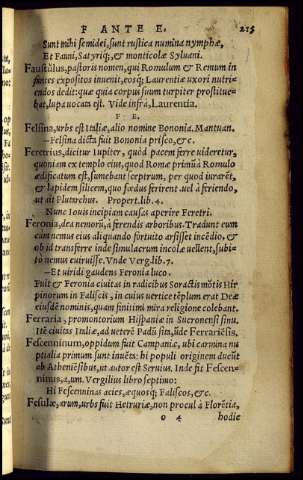 F ANTE E. 215
Sunt mihi semidei, sunt rustica numina nymphæ,
Et Fauni, Satyriq;, et monticolæ Syluani.
Faustulus, pastoris nomen, qui Romulum & Remum in
fantes expositos inuenit, eosq; Laurentiæ uxori nutri-
endos dedit: quæ quia corpus suum turpiter prostitue-
bat, lupa uocata est. Vide infrà, Laurentia.
F E.
Felsina, urbs est Italiæ, alio nomine Bononia. Mantuan.
—Felsina dicta fuit Bononia prisco, &c.
Feretrius, dicitur Iupiter, quòd pacem ferre uideretur,
quoniam ex templo eius, quod Romæ primũ à Romulo
ædificatum est, sumebant sceptrum, per quod iurarēt,
& lapidem silicem, quo fœdus ferirent uel à feriendo,
ut ait Plutarchus. Propert. lib. 4.
Nunc Iouis incipiam causas aperire Feretri.
Feronia, dea nemorũ, à ferendis arboribus. Tradunt eum
cum nemus eius aliquando fortuito arsisset incēdio, &
ob id transferre inde simulacrum incolæ uellent, subi-
tò nemus euiruisse. Vnde Verg. lib. 7.
—Et uiridi gaudens Feronia luco.
Fuit & Feronia ciuitas in radicibus Soractis mõtis Hir
pinorum in Faliscis, in cuius uertice tēplum erat Deæ
eiusdē nominis, quam finitimi mira religione colebant.
Ferraria, promontorium Hispaniæ in Sucronensi sinu.
Itē ciuitas Italiæ, ad ueterē Padũ sita, ũde Ferrariēsis.
Fescenninum, oppidum fuit Campaniæ, ubi carmina nu
ptialia primum sunt inuēta: hi populi originem ducũt
ab Atheniēsibus, ut autor est Seruius. Inde fit Fescen-
ninus, a, um. Vergilius libro septimo:
Hi Fescenninas acies, æquosq; Faliscos, &c.
Fesulæ, arum, urbs fuit Hetruriæ, non procul à Florētia,
o 4 hodie